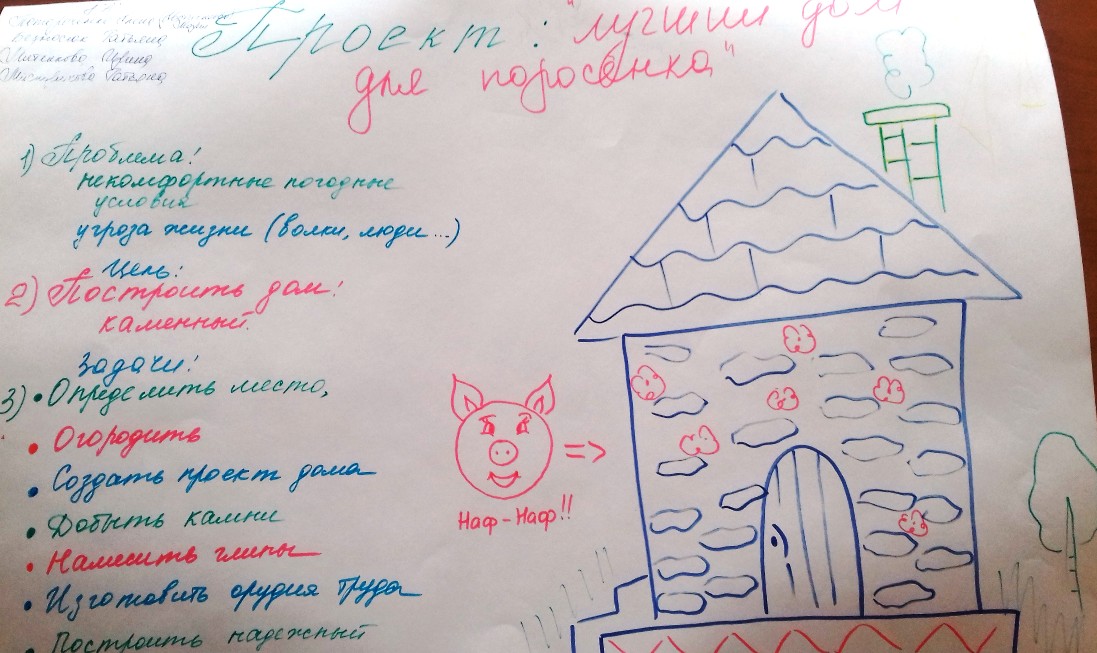 Татьяна
Ирина
Татьяна
Проект: "лучший дом
для поросёнка"
1) Проблема!
некомфортные погодные
условия
угроза жизни (волки, люди...)
Цель:
2) Построить дом!
каменный.
Задачи:
3) • Определить место,
• Огородить
• Создать проект дома
• Добыть камни
• Намесить глины
• Изготовить орудия труда
• Построить надежный
Наф-Наф!!